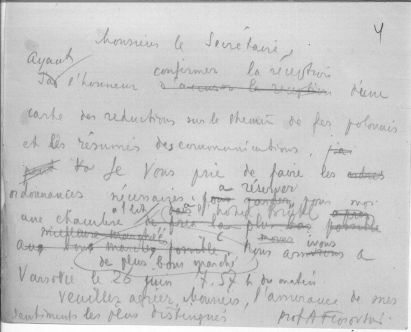 4
Monsieur le Secrétaire,
Ayant confirmer la réception
J'ai l'honneur d'accuser la réception d'une
carte des reductions sur le chemin de fer polonais
et les résumés des communications,
Je Vous prie de faire les
ordonnances nécessaires à réserver pour moi
une chambre à l'hôtel
meilleure marché
aux bons marchés possible. Nous arrivons a
de plus bons marché
Varsovie le 26 juin 7,57 h du matin
Veuillez agréer, Monsieur, l'assurance de mes
sentiments les plus distingués Prof A